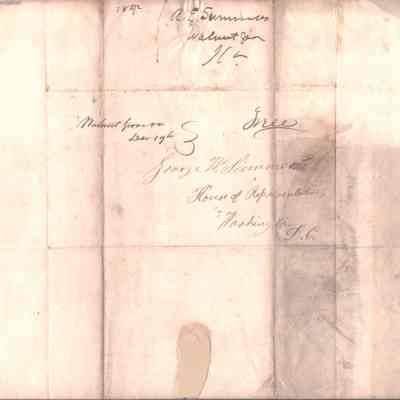 1842
A. E. Summers
Walnut Gro
Free
Walnut Grove
Dec 19th
George W Summers
House of Representatives
Washington
D. C.